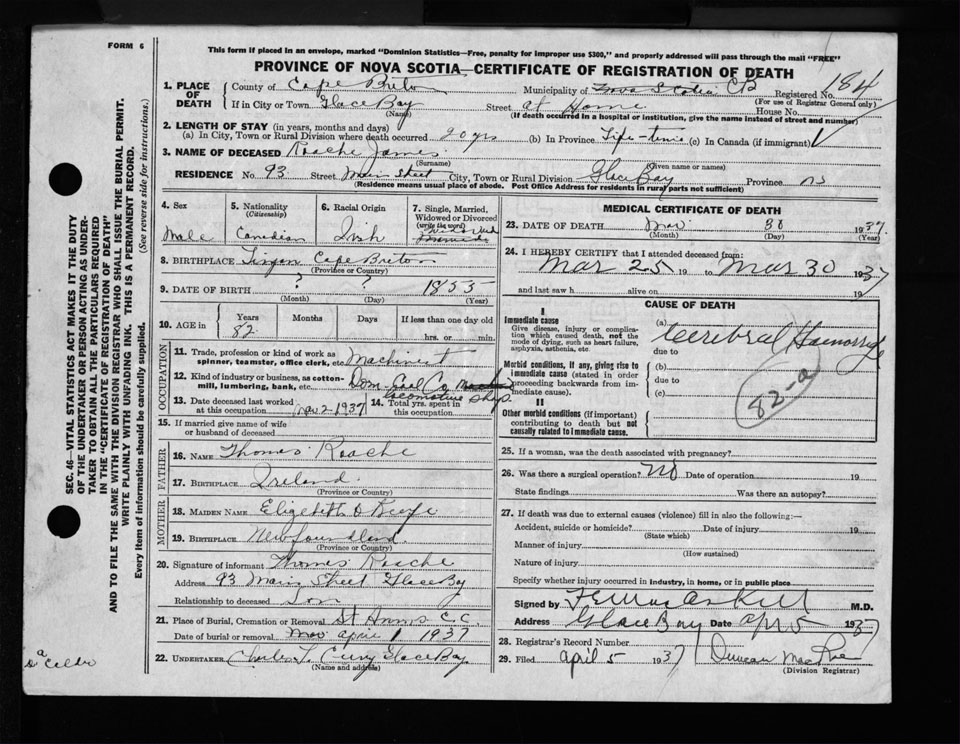 FORM 6
This form if placed in an envelope, marked "Dominion Statistics—Free, penalty for improper use $300," and properly addressed will pass through the mail "FREE"
PROVINCE OF NOVA SCOTIA—CERTIFICATE OF REGISTRATION OF DEATH
1. PLACE OF DEATH
County of Cape Breton Municipality of Nova Scotia CB Registered No. 184
(For use of Registrar General only)
If in City or Town Glace Bay Street at Home House No.
(Name) (If death occurred in a hospital or institution, give the name instead of street and number)
2. LENGTH OF STAY (in years, months and days)
(a) In City, Town or Rural Division where death occurred 20 yrs (b) In Province Life-time (c) In Canada (if immigrant)
3. NAME OF DECEASED Roache James
(Surname) (Given name or names)
RESIDENCE No. 93 Street Main Street City, Town or Rural Division Glace Bay Province NS
(Residence means usual place of abode. Post Office Address for residents in rural parts not sufficient)
4. Sex Male
5. Nationality (Citizenship) Canadian
6. Racial Origin Irish
7. Single, Married, Widowed or Divorced (write the word)
8. BIRTHPLACE Cape Breton
(Province or Country)
9. DATE OF BIRTH ? ? 1855
(Month) (Day) (Year)
10. AGE in Years Months Days If less than one day old
82 hrs. or min.
OCCUPATION
11. Trade, profession or kind of work as spinner, teamster, office clerk, etc. Machinist
12. Kind of industry or business, as cotton-mill, lumbering, bank, etc. Dom Coal Co
locomotive shop
13. Date deceased last worked at this occupation 1937
14. Total yrs. spent in this occupation
15. If married give name of wife or husband of deceased
FATHER
16. NAME Thomas Roache
17. BIRTHPLACE Ireland
(Province or Country)
MOTHER
18. MAIDEN NAME Elizebeth O Keefe
19. BIRTHPLACE Newfoundland
(Province or Country)
20. Signature of informant Thomas Roache
Address 93 Main Street Glace Bay
Relationship to deceased Son
21. Place of Burial, Cremation or Removal St Anns C.C.
Date of burial or removal april 1 1937
22. UNDERTAKER Charles L Curry Glace Bay
(Name and address)
MEDICAL CERTIFICATE OF DEATH
23. DATE OF DEATH Mar 30 1937
(Month) (Day) (Year)
24. I HEREBY CERTIFY that I attended deceased from:
Mar 25 19 to Mar 30 1937
and last saw h alive on 19
CAUSE OF DEATH
I
Immediate cause
Give disease, injury or complication which caused death, not the mode of dying, such as heart failure, asphyxia, asthenia, etc.
(a) Cerebral Haemorrage
due to
Morbid conditions, if any, giving rise to immediate cause (stated in order proceeding backwards from immediate cause).
(b)
due to
(c)
82-a
II
Other morbid conditions (if important) contributing to death but not causally related to immediate cause.
25. If a woman, was the death associated with pregnancy?
26. Was there a surgical operation? No Date of operation 19
State findings Was there an autopsy?
27. If death was due to external causes (violence) fill in also the following:—
Accident, suicide or homicide? Date of injury 19
(State which)
Manner of injury
(How sustained)
Nature of injury
Specify whether injury occurred in industry, in home, or in public place
Signed by M.D.
Address Glace Bay Date Apr 5 1937
28. Registrar's Record Number
29. Filed April 5 1937 Duncan MacRae
(Division Registrar)
SEC. 46—VITAL STATISTICS ACT MAKES IT THE DUTY
OF THE UNDERTAKER OR PERSON ACTING AS UNDER-
TAKER TO OBTAIN ALL THE PARTICULARS REQUIRED
IN THE "CERTIFICATE OF REGISTRATION OF DEATH"
AND TO FILE THE SAME WITH THE DIVISION REGISTRAR WHO SHALL ISSUE THE BURIAL PERMIT.
WRITE PLAINLY WITH UNFADING INK. THIS IS A PERMANENT RECORD.
Every item of information should be carefully supplied. (See reverse side for instructions.)